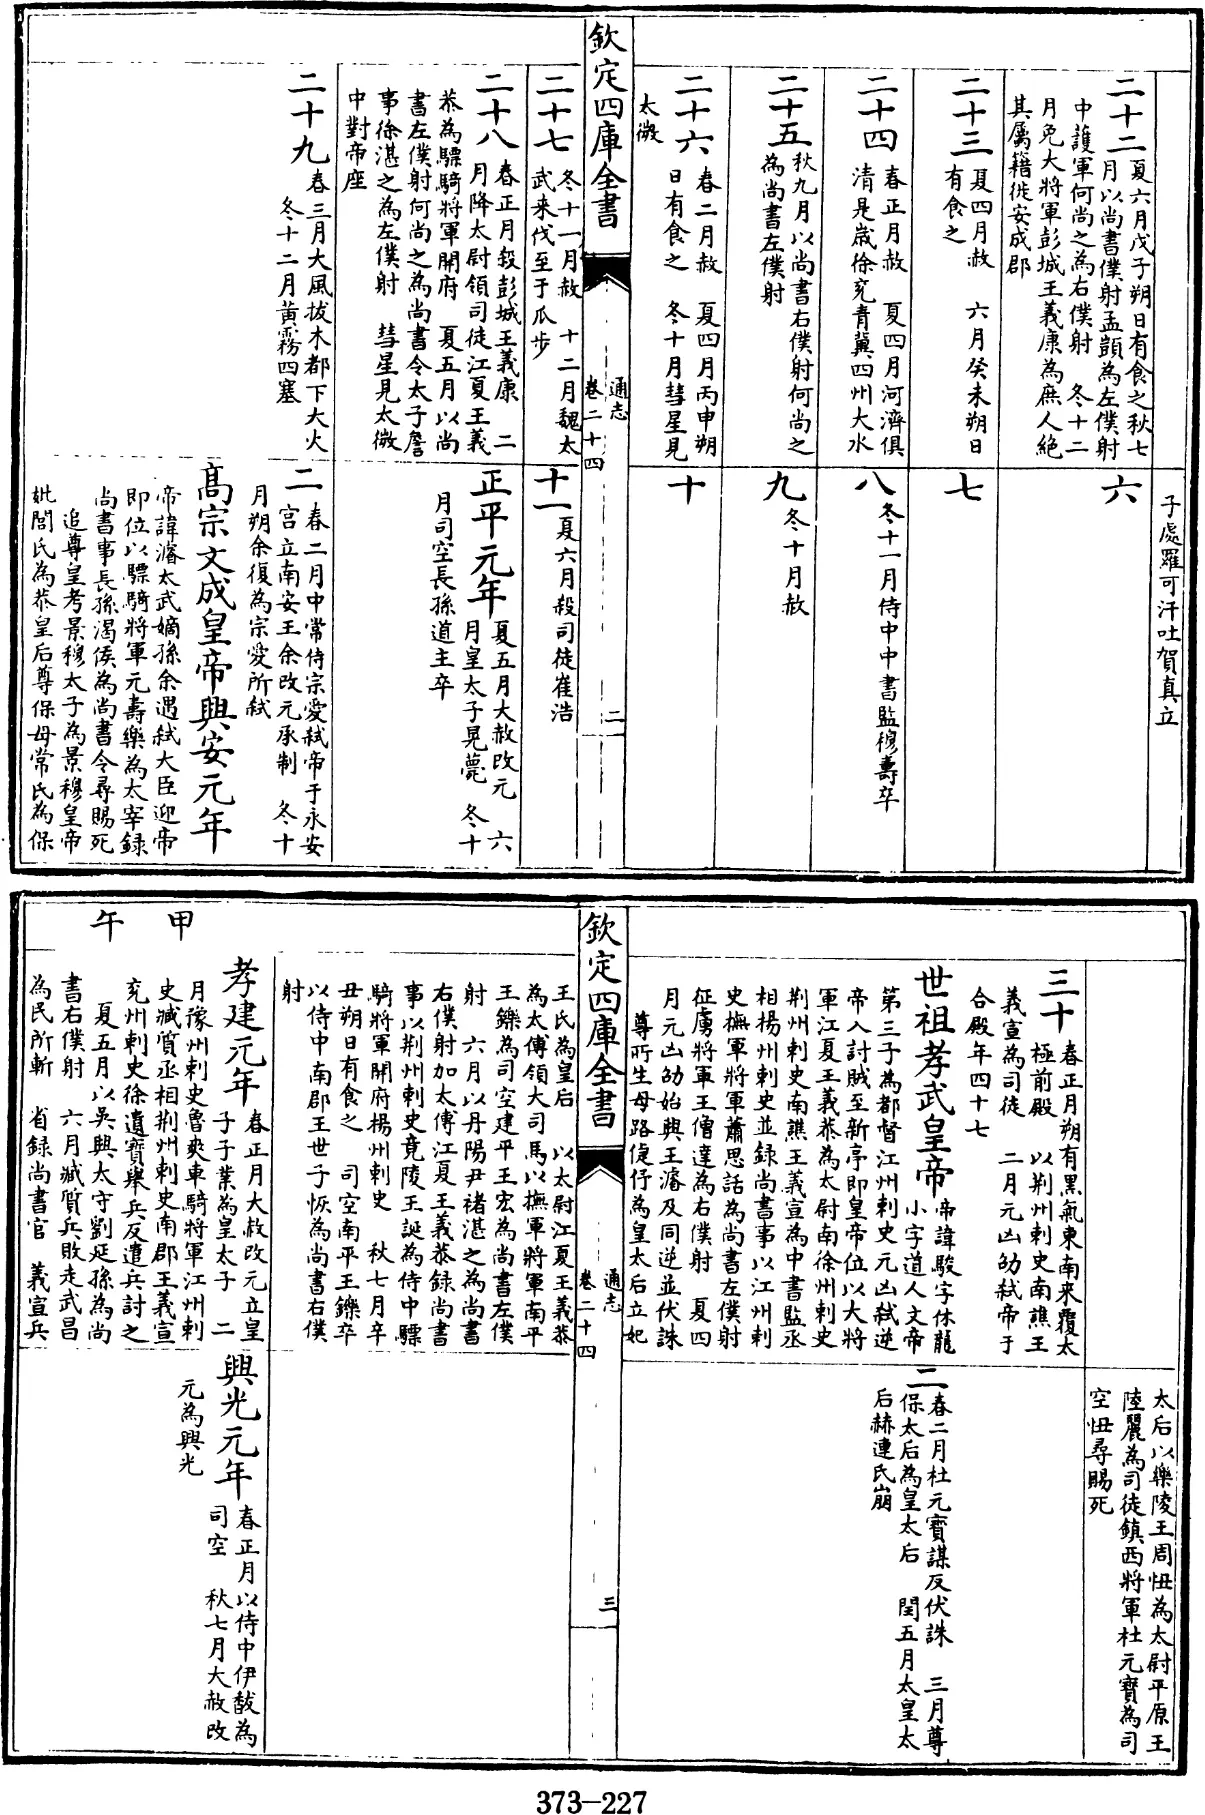 子處羅可汗吐賀真立
二十二 夏六月戊子朔日有食之秋七
月以尚書僕射孟顗為左僕射
中護軍何尚之為右僕射 冬十二
月免大將軍彭城王義康為庶人絶
其屬籍徙安成郡
六
二十三 夏四月赦 六月癸未朔日
有食之
七
二十四 春正月赦 夏四月河濟俱
清是嵗徐兖青冀四州大水
八 冬十一月侍中中書監穆壽卒
二十五 秋九月以尚書右僕射何尚之
為尚書左僕射
九 冬十月赦
二十六 春二月赦 夏四月丙申朔
日有食之 冬十月彗星見
太微
十
欽定四庫全書
通志
卷二十四
二
二十七 冬十一月赦 十二月魏太
武来伐至于瓜步
十一 夏六月殺司徒崔浩
二十八 春正月殺彭城王義康 二
月降太尉領司徒江夏王義
恭為驃騎將軍開府 夏五月以尚
書左僕射何尚之為尚書令太子詹
事徐湛之為左僕射 彗星見太微
中對帝座
正平元年 夏五月大赦改元 六
月皇太子晃薨 冬十
月司空長孫道主卒
二十九 春三月大風拔木都下大火
冬十二月黄霧四塞
二 春二月中常侍宗愛弑帝于永安
宫立南安王余改元承制 冬十
月朔余復為宗愛所弑
髙宗文成皇帝興安元年
帝諱濬太武嫡孫余遇弑大臣迎帝
即位以驃騎將軍元壽樂為太宰録
尚書事長孫渴侯為尚書令尋賜死
追尊皇考景穆太子為景穆皇帝
妣閭氏為恭皇后尊保母常氏為保
太后以樂陵王周忸為太尉平原王
陸麗為司徒鎮西將軍杜元寶為司
空忸尋賜死
三十 春正月朔有黑氣東南来覆太
極前殿 以荆州刺史南譙王
義宣為司徒 二月元凶劭弑帝于
合殿年四十七
世祖孝武皇帝 帝諱駿字休龍
小字道人文帝
第三子為都督江州刺史元凶弑逆
帝入討賊至新亭即皇帝位以大將
軍江夏王義恭為太尉南徐州刺史
荆州刺史南譙王義宣為中書監丞
相楊州刺史並録尚書事以江州刺
史撫軍將軍蕭思話為尚書左僕射
征虜將軍王僧達為右僕射 夏四
月元凶劭始興王濬及同逆並伏誅
尊所生母路倢伃為皇太后立妃
二 春二月杜元寶謀反伏誅 三月尊
保太后為皇太后 閏五月太皇太
后赫連氏崩
欽定四庫全書
通志
卷二十四
三
王氏為皇后 以太尉江夏王義恭
為太傅領大司馬以撫軍將軍南平
王鑠為司空建平王宏為尚書左僕
射 六月以丹陽尹褚湛之為尚書
右僕射加太傅江夏王義恭録尚書
事以荆州刺史竟陵王誕為侍中驃
騎將軍開府楊州刺史 秋七月辛
丑朔日有食之 司空南平王鑠卒
以侍中南郡王世子恢為尚書右僕
射
甲午
孝建元年 春正月大赦改元立皇
子子業為皇太子 二
月豫州刺史魯爽車騎將軍江州刺
史臧質丞相荆州刺史南郡王義宣
兖州刺史徐遺寶舉兵反遣兵討之
夏五月以吳興太守劉延孫為尚
書右僕射 六月臧質兵敗走武昌
為民所斬 省録尚書官 義宣兵
興光元年 春正月以侍中伊馛為
司空 秋七月大赦改
元為興光
373-227